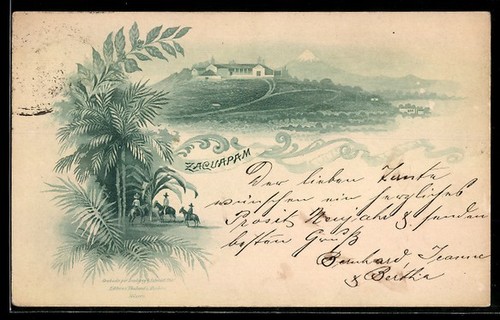 ZACUAPAM
Der lieben Tante
wünschen ein herzliches
Prosit Neujahr & senden
besten Gruß
Bernhard, Jeanne
& Bertha